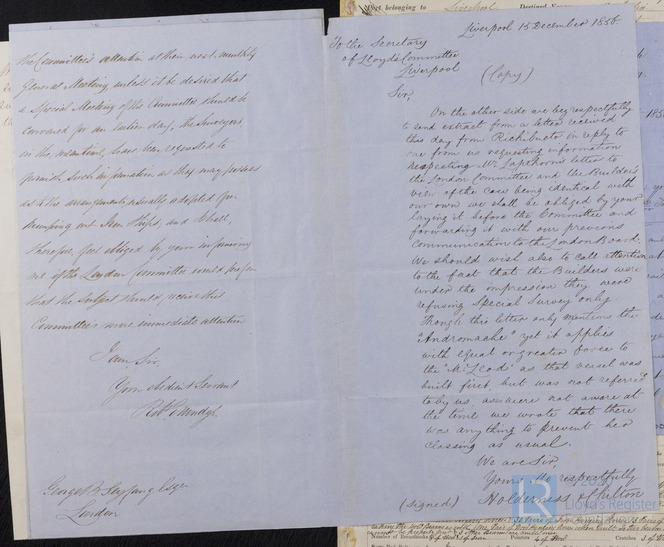 the Committee's attention at their next monthly
General Meeting, unless it be desired that
a Special Meeting of the Committee should be
convened for an earlier day, the Surveyors,
in the meantime, have been requested to
furnish such information as they may possess
as to the arrangements usually adopted for
pumping out Iron Ships, and I shall,
therefore, feel obliged by your informing
me if the London Committee would prefer
that the subject should receive this
Committee's more immediate attention
I am, Sir,
Your obedient Servant
George B. Seyfang Esqre
London
Liverpool 15 December 1856
To the Secretary
of Lloyd's Committee
Liverpool
(Copy)
Sir,
On the other side we beg respectfully
to send extract from a letter received
this day from Richibucto in reply to
one from us requesting information
respecting Mr. letter to
the London Committee and the Builder's
view of the case being identical with
our own we shall be obliged by your
laying it before the Committee and
forwarding it with our previous
communication to the London Board.
We should wish also to call attention
to the fact that the Builders were
under the impression they were
refusing Special Survey only
Though this letter only mentions the
"Andromache" yet it applies
with equal or greater force to
the "McLeod" as that vessel was
built first, but was not referred
to by us, as we were not aware at
the time we wrote that there
was anything to prevent her
classing as usual.
We are Sir,
Yours Mo. respectfully
(signed) Holderness & Chilton
Lloyd's Register
belonging to Liverpool